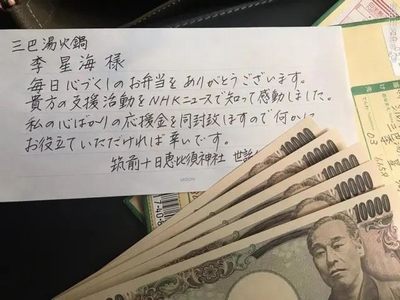 三巴湯火鍋
李星海 様
毎日心づくしのお弁当をありがとうございます。
貴方の支援活動をNHKニュースで知って感動しました。
私の心ばかりの応援金を同封致しますので何かに
お役立ていただければ幸いです。
筑前十日恵比須神社 世話
10000
10000
10000
10000
10000